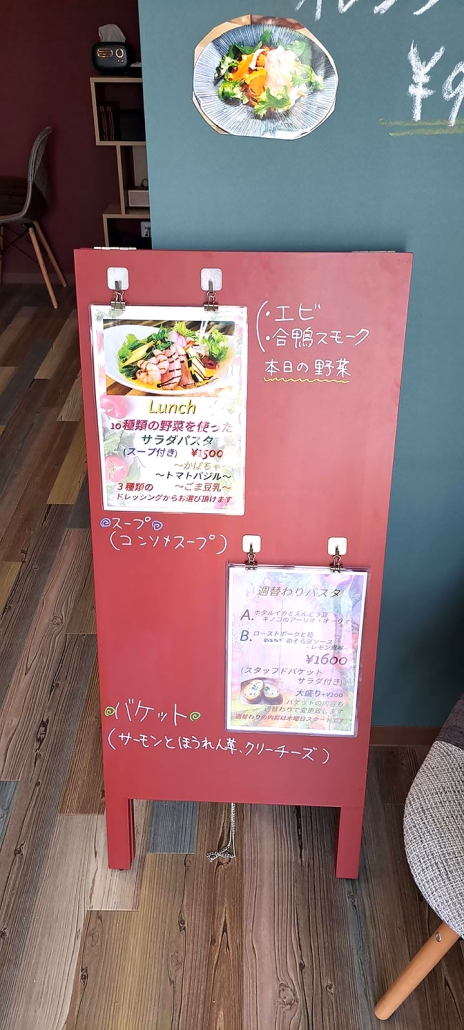 ¥9
・エビ
・合鴨スモーク
本日の野菜
Lunch
10種類の野菜を使った
サラダパスタ
(スープ付き) ¥1500
〜かぼちゃ〜
〜トマトバジル〜
3種類の 〜ごま豆乳〜
ドレッシングからお選び頂けます
スープ
(コンソメスープ)
週替わりパスタ
A. ホタルイカとえんどう豆
キノコのアーリオ・オーリオ
B. ローストポークと筍
のそら豆ソース
-レモン風味-
¥1600
(スタッフドバケット
サラダ付き)
大盛り+¥200
バケットの内容も
週替わりで変更致します
週替わりの内容は木曜日スタートです
バケット
(サーモンとほうれん草、クリーチーズ)